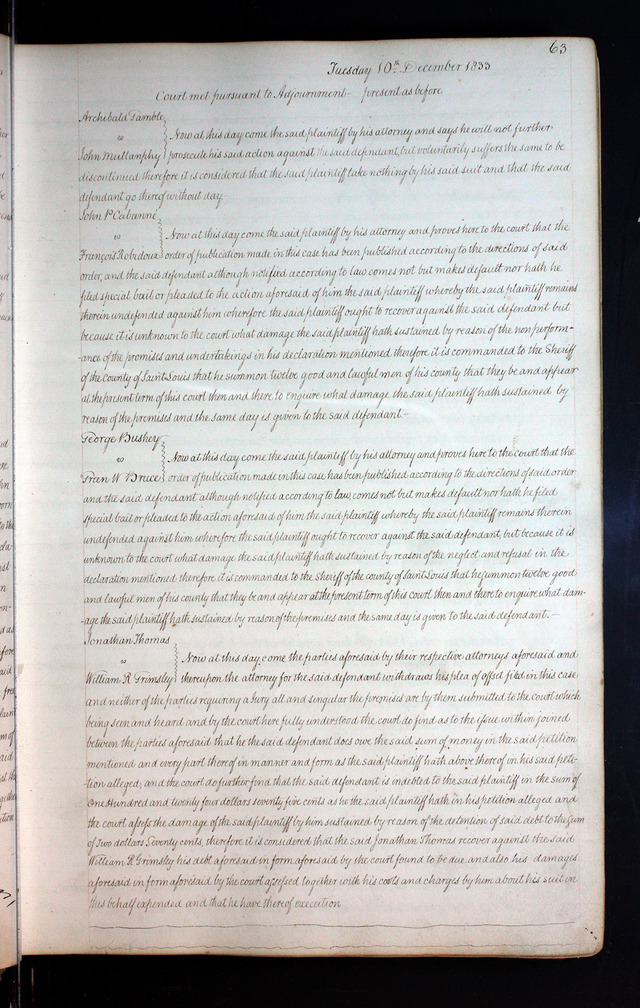 63
Tuesday 10th December 1833
Court met pursuant to Adjournment present as before
Archibald Gamble
vs Now at this day come the said plaintiff by his attorney and says he will not further
John Mullanphy prosecute his said action against the said defendant, but voluntarily suffers the same to be
discontinued therefore it is considered that the said plaintiff take nothing by his said suit and that the said
defendant go thereof without day
John P Cabanné
vs Now at this day come the said plaintiff by his attorney and proves here to the court that the
François Robidoux order of publication made in this case has been published according to the directions of said
order, and the said defendant although notified according to law comes not but makes default nor hath he
filed special bail or pleaded to the action aforesaid of him the said plaintiff whereby the said plaintiff remains
therein undefended against him wherefore the said plaintiff ought to recover against the said defendant but
because it is unknown to the court what damage the said plaintiff hath sustained by reason of the non perform-
-ance of the promises and undertakings in his declaration mentioned therefore it is commanded to the Sheriff
of the county of Saint Louis that he summon twelve good and lawful men of his county that they be and appear
at the present term of this court then and there to enquire what damage the said plaintiff hath sustained by
reason of the premises and the same day is given to the said defendant.-
George Bushey
vs Now at this day come the said plaintiff by his attorney and proves here to the court that the
W Bruce order of publication made in this case has been published according to the directions of said order
and the said defendant although notified according to law comes not but makes default nor hath he filed
special bail or pleaded to the action aforesaid of him the said plaintiff whereby the said plaintiff remains therein
undefended against him wherefore the said plaintiff ought to recover against the said defendant, but because it is
unknown to the court what damage the said plaintiff hath sustained by reason of the neglect and refusal in the
declaration mentioned therefore it is commanded to the Sheriff of the county of Saint Louis that he summon twelve good
and lawful men of his county that they be and appear at the present term of this court then and there to enquire what dam-
-age the said plaintiff hath sustained by reason of the premises and the same day is given to the said defendant.-
Jonathan Thomas
vs Now at this day come the parties aforesaid by their respective attorneys aforesaid and
William R Grimsley thereupon the attorney for the said defendant withdraws his plea of offset filed in this case
and neither of the parties requiring a Jury all and singular the premises are by them submitted to the court which
being seen and heard and by the court here fully understood the court do find as to the issue within joined
between the parties aforesaid that he the said defendant does owe the said sum of money in the said petition
mentioned and every part thereof in manner and form as the said plaintiff hath above thereof in his said peti-
-tion alleged; and the court do further find that the said defendant is indebted to the said plaintiff in the sum of
One Hundred and twenty four dollars seventy five cents as he the said plaintiff hath in his petition alleged and
the court assess the damage of the said plaintiff by him sustained by reason of the detention of said debt to the Sum
of Two dollars Seventy cents, therefore it is considered that the said Jonathan Thomas recover against the said
William R Grimsley his debt aforesaid in form aforesaid by the court found to be due and also his damages
aforesaid in form aforesaid by the court assessed together with his costs and charges by him about his suit in
this behalf expended and that he have thereof execution